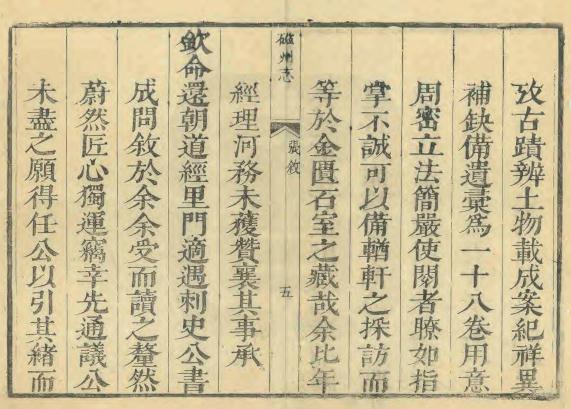 攷古蹟辨土物載成案紀祥異
補缺備遺彚為一十八卷用意
周密立法簡嚴使閱者瞭如指
掌不誠可以備輶軒之採訪而
等於金匱石室之藏哉余比年
磁州志
張敘
五
經理河務未獲贊襄其事承
欽命還朝道經里門適遇刺史公書
成問敘於余余受而讀之釐然
蔚然匠心獨運竊幸先通議公
未盡之願得任公以引其緒而